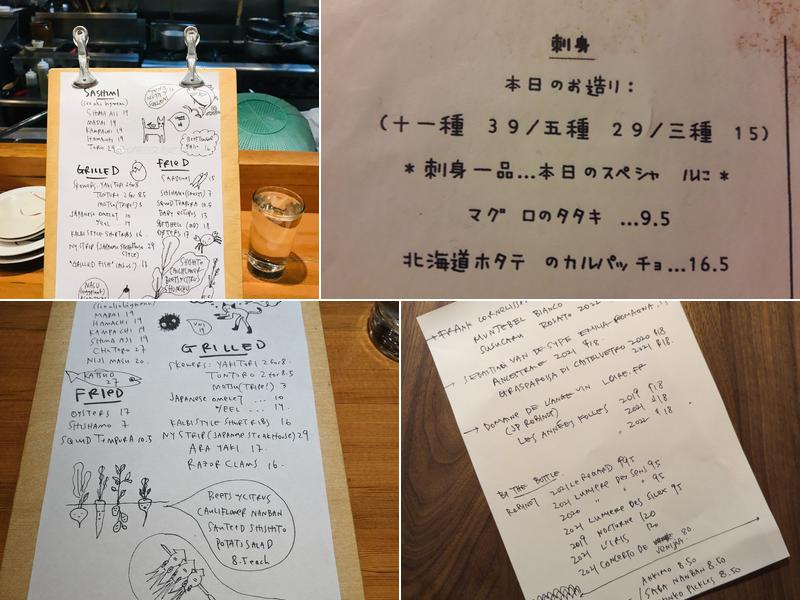 SASHIMI
SHIMA AJI 19
MADAI 19
KAMPACHI 19
HAMACHI 19
TORO 29
GRILLED
SKEWERS: YAKITORI 2 for 8
TONTORO 2 for 8.5
MOTSU (TRIPE!) 3
JAPANESE OMELET 10
KALBI STYLE SHORTRIBS 16
NY STRIP (JAPANESE STEAKHOUSE 29
STYLE)
FRIED
SARDINES 15
SHISHAMO (SMELT) 7
SQUID TEMPURA 10.5
BABY OCTOPUS 13
OYSTERS 17
SHISHITO
CAULIFLOWER
BEETS Y CITRUS
NASU
刺身
本日のお造り：
(十一種 39/五種 29/三種 15)
* 刺身一品...本日のスペシャ ルに *
マグ ロのタタキ ...9.5
北海道ホタテ のカルパッ チョ...16.5
MADAI 19
HAMACHI 19
KAMPACHI 19
SHIMA AJI 19
CHUTORO 27
NIJI MASU 20
KATSUO
27
UNI
19
FRIED
OYSTERS 17
SHISHAMO 7
SQUID TEMPURA 10.5
GRILLED
SKEWERS: YAKITORI 2 for 8.
TONTORO 2 for 8.5
MOTSU (TRIPE!) 3
JAPANESE OMELET ... 10
KALBI STYLE SHORT RIBS 16
NY STRIP (JAPANESE STEAK HOUSE) 29
ARA YAKI 17.
RAZOR CLAMS 16.
BEETS Y CITRUS
CAULIFLOWER NANBAN
SAUTEED SHISHITO
POTATO SALAD
8.5 each
→ FRANK CORNELISSEN
MUNJEBEL BIANCO
SUSUCARU ROSATO 2022
→ SEBASTIAN VAN DE SYPE EMILIA-ROMAGNA.IT
ANCESTRALE 2021 $18.
GRASPAROSSA DI CASTELVETRO 2020 $18
2021 $18.
→ DOMAINE DE L'ANGE VIN LOIRE.FR
(JP ROBINOT) 2019 $18
LES ANNÉES FOLLES 2021 $18
" 2022 $18
BY THE BOTTLE
ROBINOT 2021 LE REGARD $95
2021 LUMIERE DES SENS 95
2020 " " " 95
2021 LUMIERE DES SILEX 95
2019 NOCTURNE 120
2021 L'IRIS 120
2021 CONCERTO DE VENISIA 80.
ANKIMO 8.50
SABA NANBAN 8.50
PICKLES 8.50